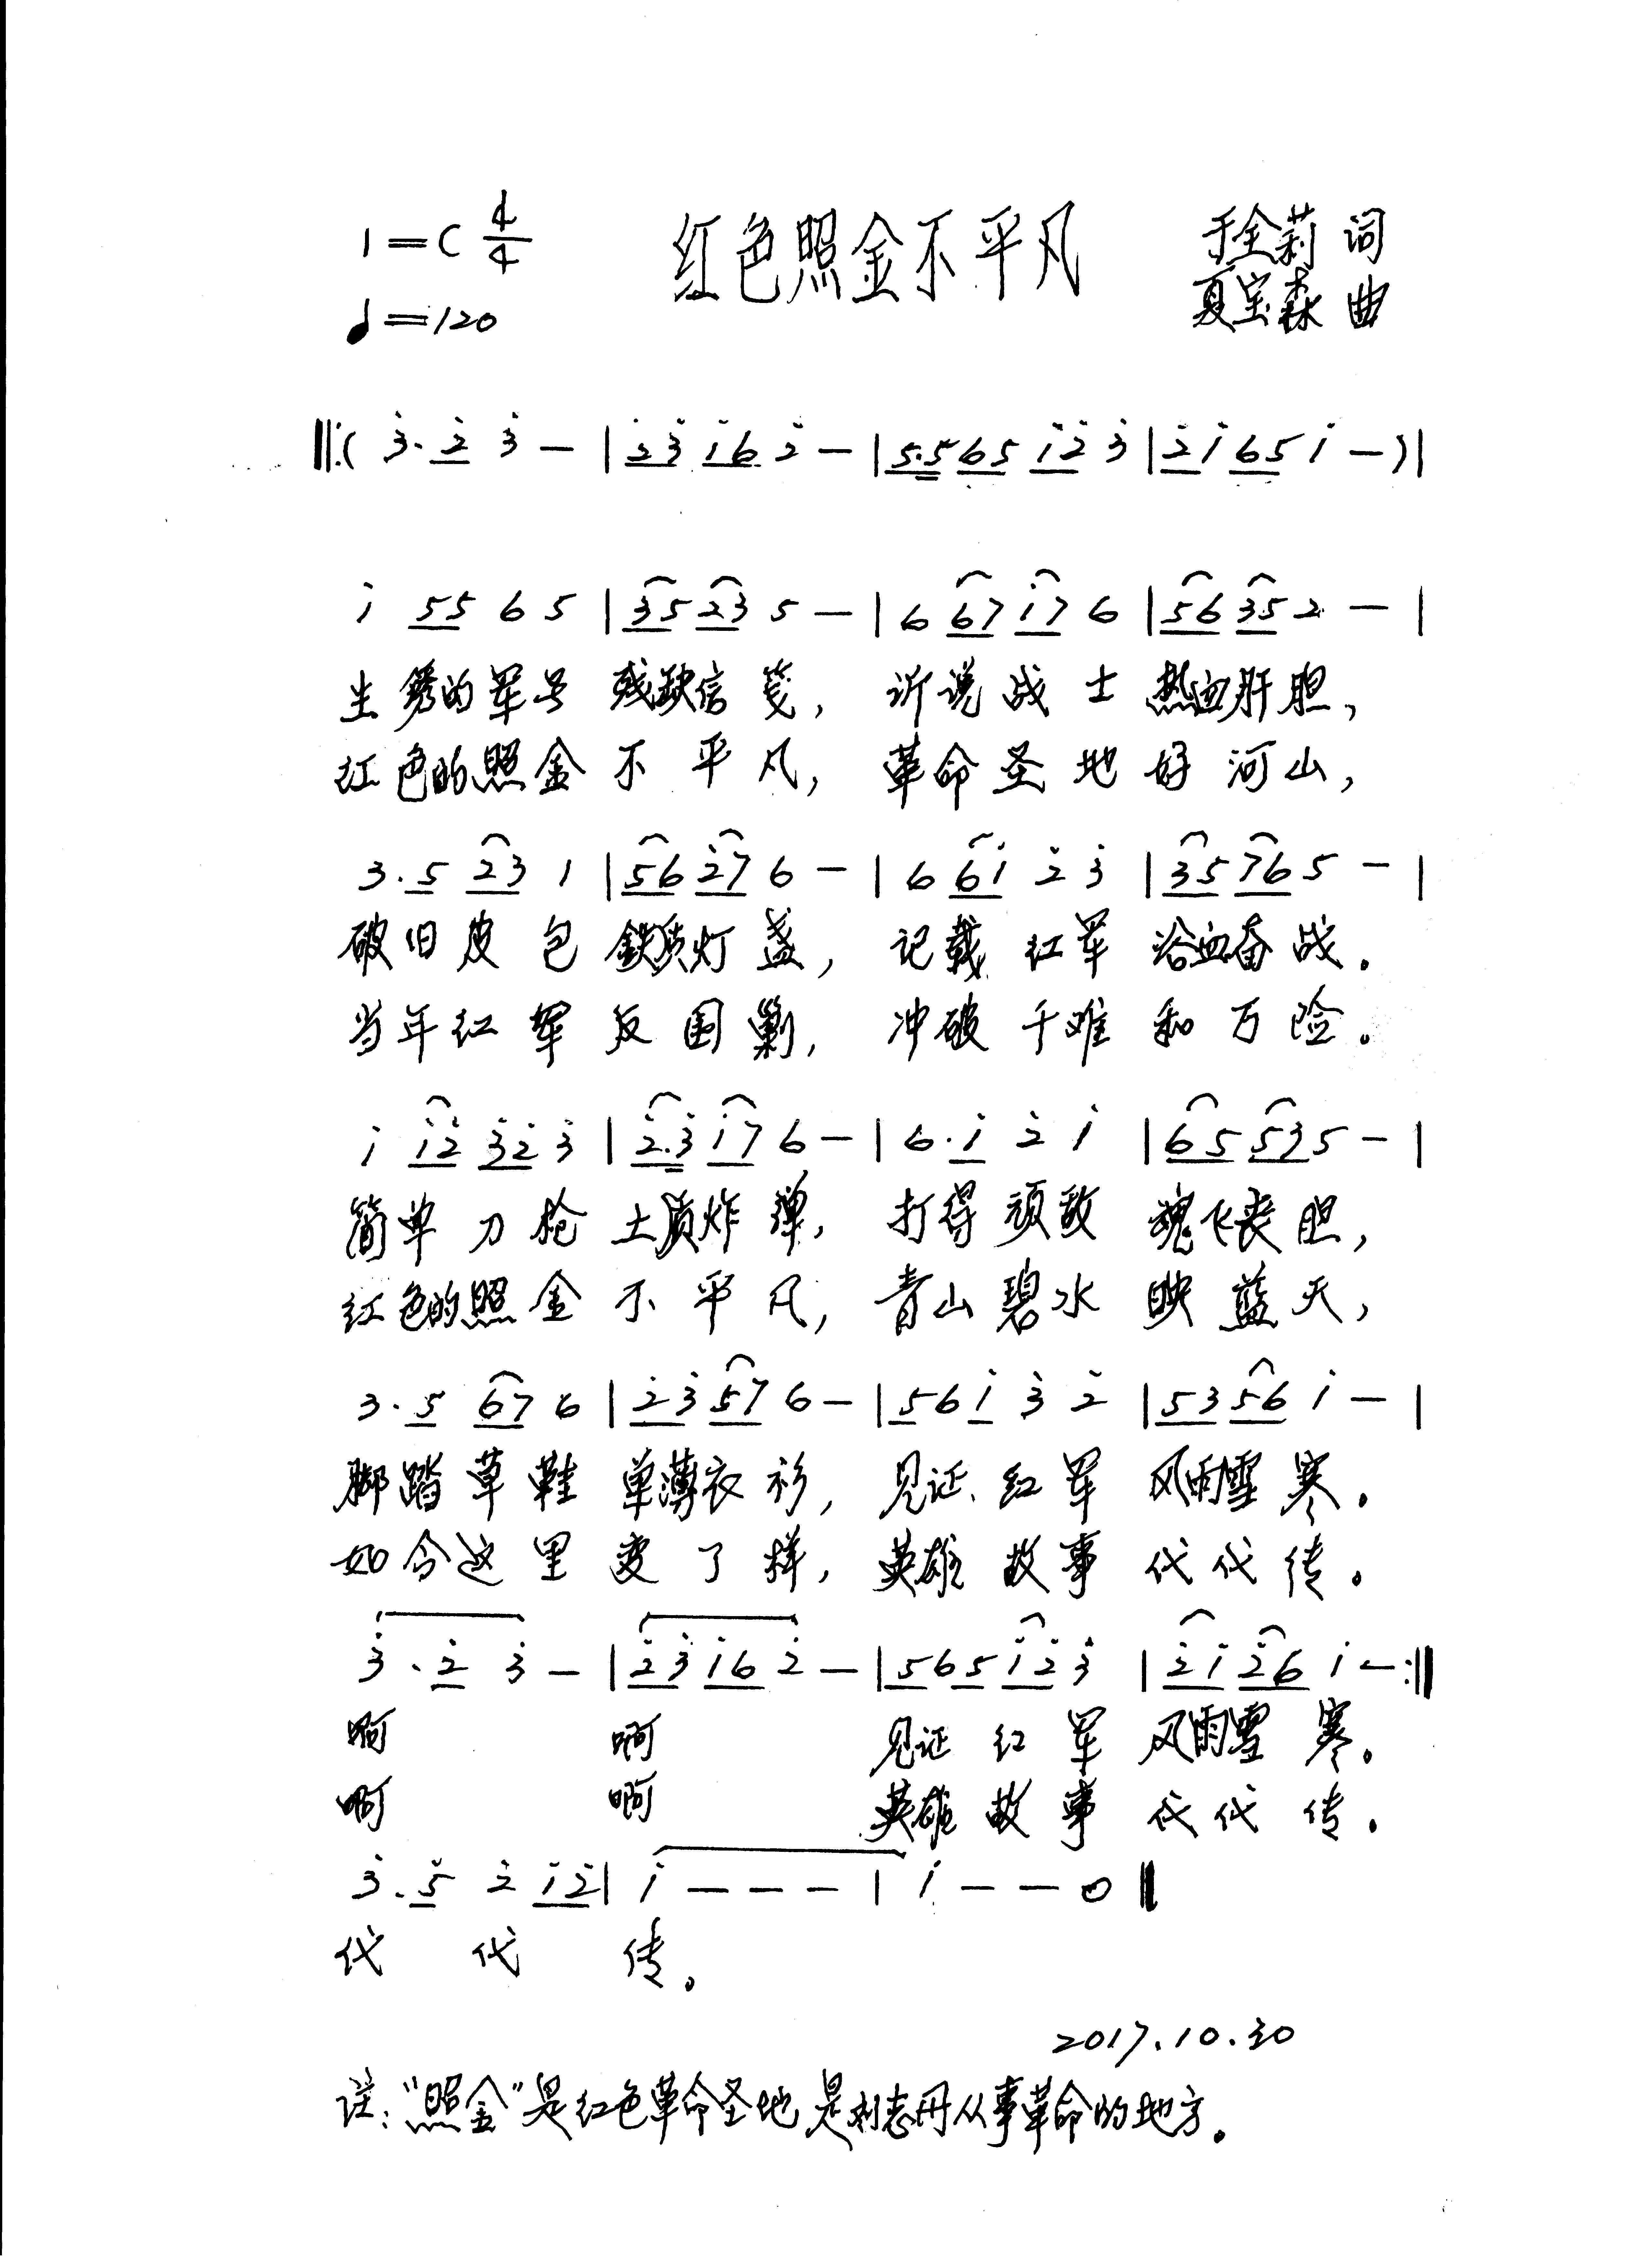 1=C 4/4 红色照金不平凡 于全莉 词
♩=120 夏宝森 曲
‖:( 3̇. 2̇ 3̇ — | 2̇3̇ 1̇6 2̇ — | 5.5 65 1̇2̇ 3̇ | 2̇1̇ 65 1̇ — ) |
1̇ 55 6 5 | 35 23 5 — | 6 67 1̇7 6 | 56 35 2 — |
生锈的军号 残缺信笺, 诉说战士 热血肝胆,
红色的照金 不平凡, 革命圣地 好河山,
3. 5 23 1 | 56 2̇7 6 — | 6 61̇ 2̇ 3̇ | 35 76 5 — |
破旧皮包 鉄质灯盏, 记载红军 浴血奋战.
当年红军 反围剿, 冲破千难 和万险。
1̇ 1̇2̇ 3̇2̇ 3̇ | 2̇.3̇ 1̇7 6 — | 6. 1̇ 2̇ 1̇ | 65 53 5 — |
简单刀枪 土质炸弹, 打得顽敌 魂飞丧胆,
红色的照金 不平凡, 青山碧水 映蓝天,
3. 5 67 6 | 2̇3̇ 57 6 — | 5 6 1̇ 3̇ 2̇ | 53 56 1̇ — |
脚踏草鞋 单薄衣衫, 见证红军 风雨雪寒.
如今这里 变了样, 英雄故事 代代传.
3̇. 2̇ 3̇ — | 2̇3̇ 1̇6 2̇ — | 5 6 5 1̇2̇ 3̇ | 2̇1̇ 2̇6 1̇ — :‖
啊 啊 见证红军 风雨雪寒。
啊 啊 英雄故事 代代传.
3̇. 5̇ 2̇ 1̇2̇ | 1̇ — — — | 1̇ — — 0 ‖
代 代 传。
2017.10.30
註:“照金”是红色革命圣地是刘志丹从事革命的地方。